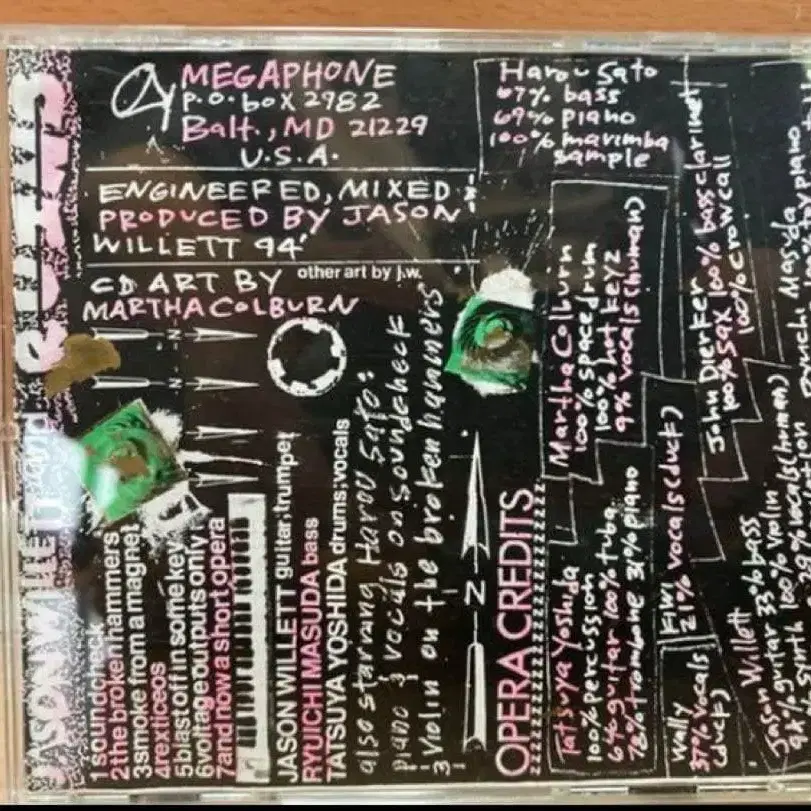 MEGAPHONE
P.O. BOX 2982
Balt., MD 21229
U.S.A.
ENGINEERED, MIXED &
PRODUCED BY JASON
WILLETT 94'
CD ART BY
MARTHA COLBURN
other art by j.w.
JASON WILLETT and
1 soundcheck
2 the broken hammers
3 smoke from a magnet
4 rexticeos
5 blast off in some key
6 voltage outputs only
7 and now a short opera
JASON WILLETT guitar, trumpet
RYUICHI MASUDA bass
TATSUYA YOSHIDA drums, vocals
also starring Harou Sato:
piano & vocals on soundcheck
& violin on the broken hammers
N
OPERA CREDITS
Tatsuya Yoshida
100% percussion
6% guitar 100% tuba
78% trombone 31% piano
Martha Colburn
100% space drum
100% hot keyz
9% vocals (human)
Harou Sato
67% bass
69% piano
100% marimba
sample
Wally
37% vocals
(duck)
Kiwi
21% vocals (duck)
John Dierker
100% sax 100% bass clarinet
100% crow call
Jason Willett
guitar 33% bass
synth 100% violin
vocals (human)
Masuda
piano